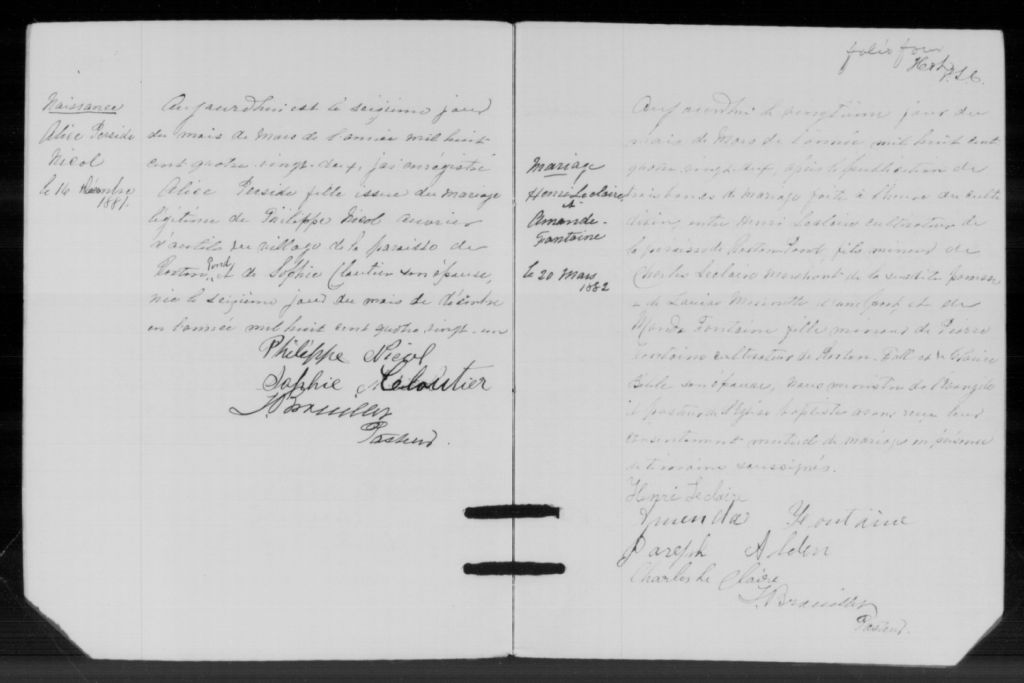 Naissance
Alice Perside
Nicol
le 16 Décembre
1881.
Aujourdhui est le seizième jour
du mois de Mars de l'année mil huit
cent quatre vingt deux, j'ai enrégistré
Alice Perside fille issue du mariage
légitime de Philippe Nicol ouvrier
du village de la paroisse de
Roxton Pond et de Sophie Cloutier son épouse,
née le seizième jour du mois de Décembre
en l'année mil huit cent quatre vingt-un
Philippe Nicol
Sophie Cloutier
Brouillet
Pasteur.
folio four
Mariage
Henri Leclaire
et
Amanda
Fontaine
le 20 Mars
1882
Aujourdhui le vingtième jour du
mois de Mars de l'année mil huit cent
quatre vingt deux, après la publication de
trois bancs de mariage faite à l'heure du culte
divin, entre Henri Leclaire cultivateur de
la paroisse de Roxton Pond, fils mineur de
Charles Leclaire Marchand de la susdite paroisse
et de Louise et de
Manda Fontaine fille mineure de Pierre
Fontaine cultivateur de Roxton Fall et de
son épouse, Nous ministre de l'Evangile
et pasteur de l'Eglise baptiste avons reçu leur
consentement mutuel de mariage en présence
de témoins soussignés.
Henri Leclaire
Amenda Fontaine
Joseph Alden
Charles Le Claire
Brouillet
Pasteur.